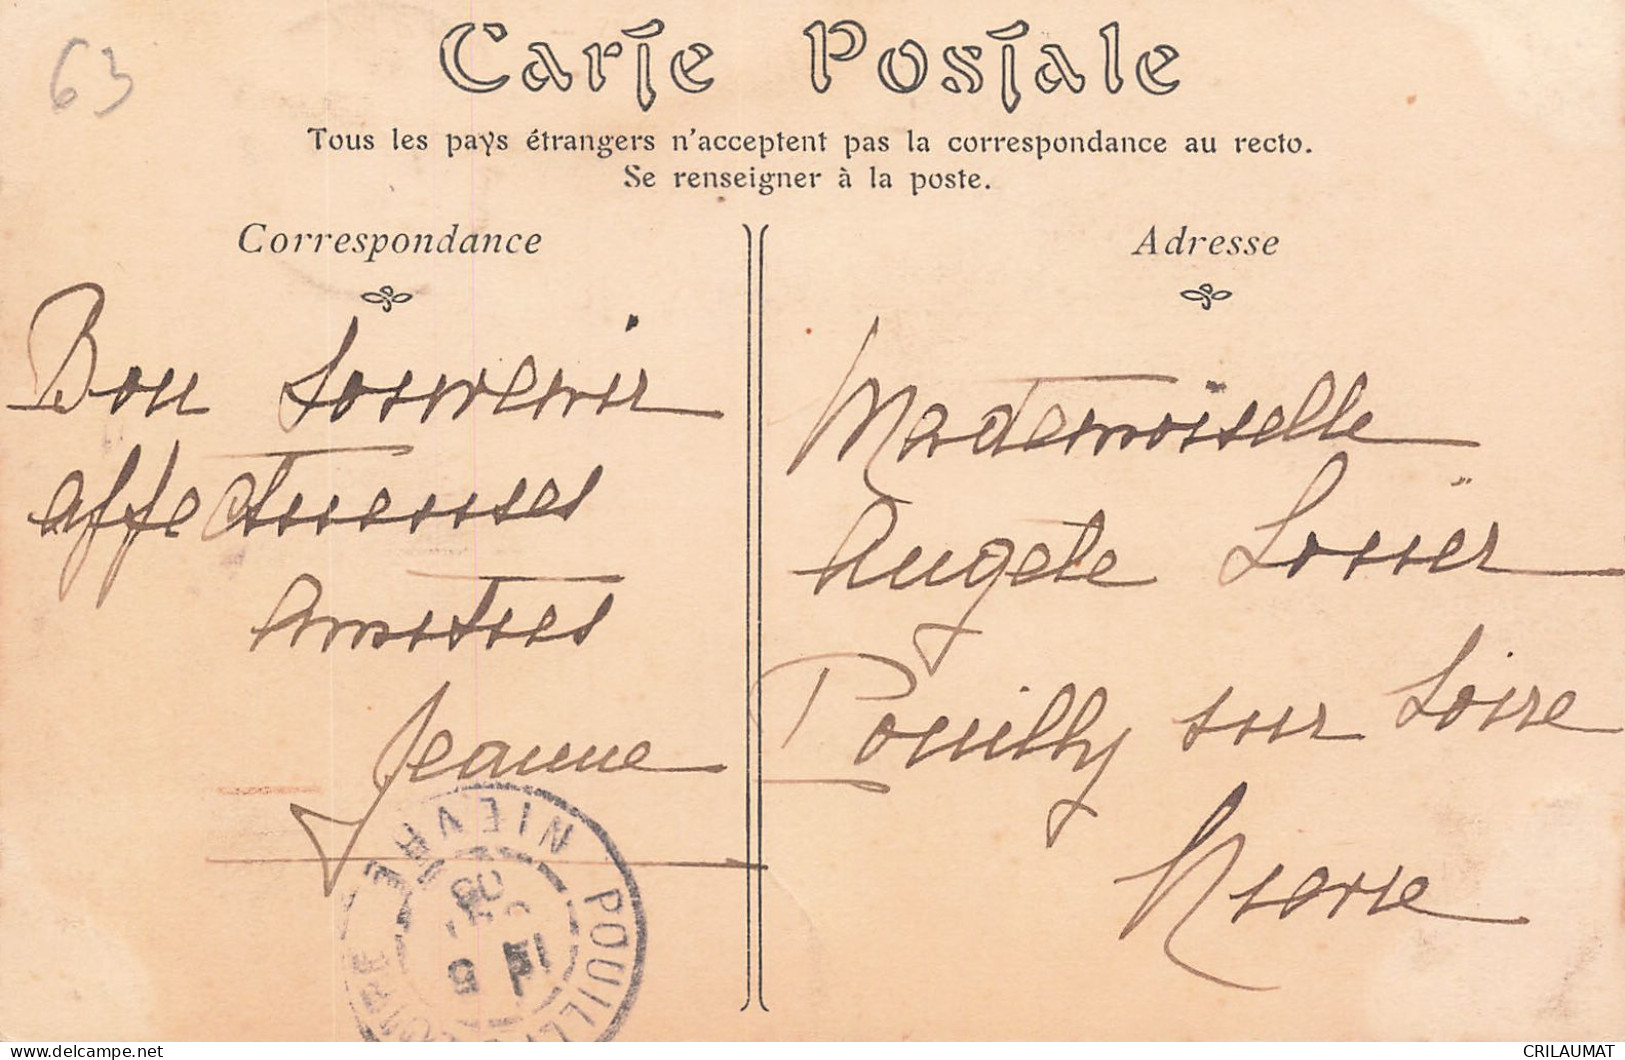 63
Carte Postale
Tous les pays étrangers n'acceptent pas la correspondance au recto.
Se renseigner à la poste.
Correspondance
Bon Souvenir
affectueuses
Amitiés
Jeanne
Adresse
Mademoiselle
Angèle
Pouilly sur Loire
Nièvre
POUILLY NIEVRE
delcampe.net
CRILAUMAT